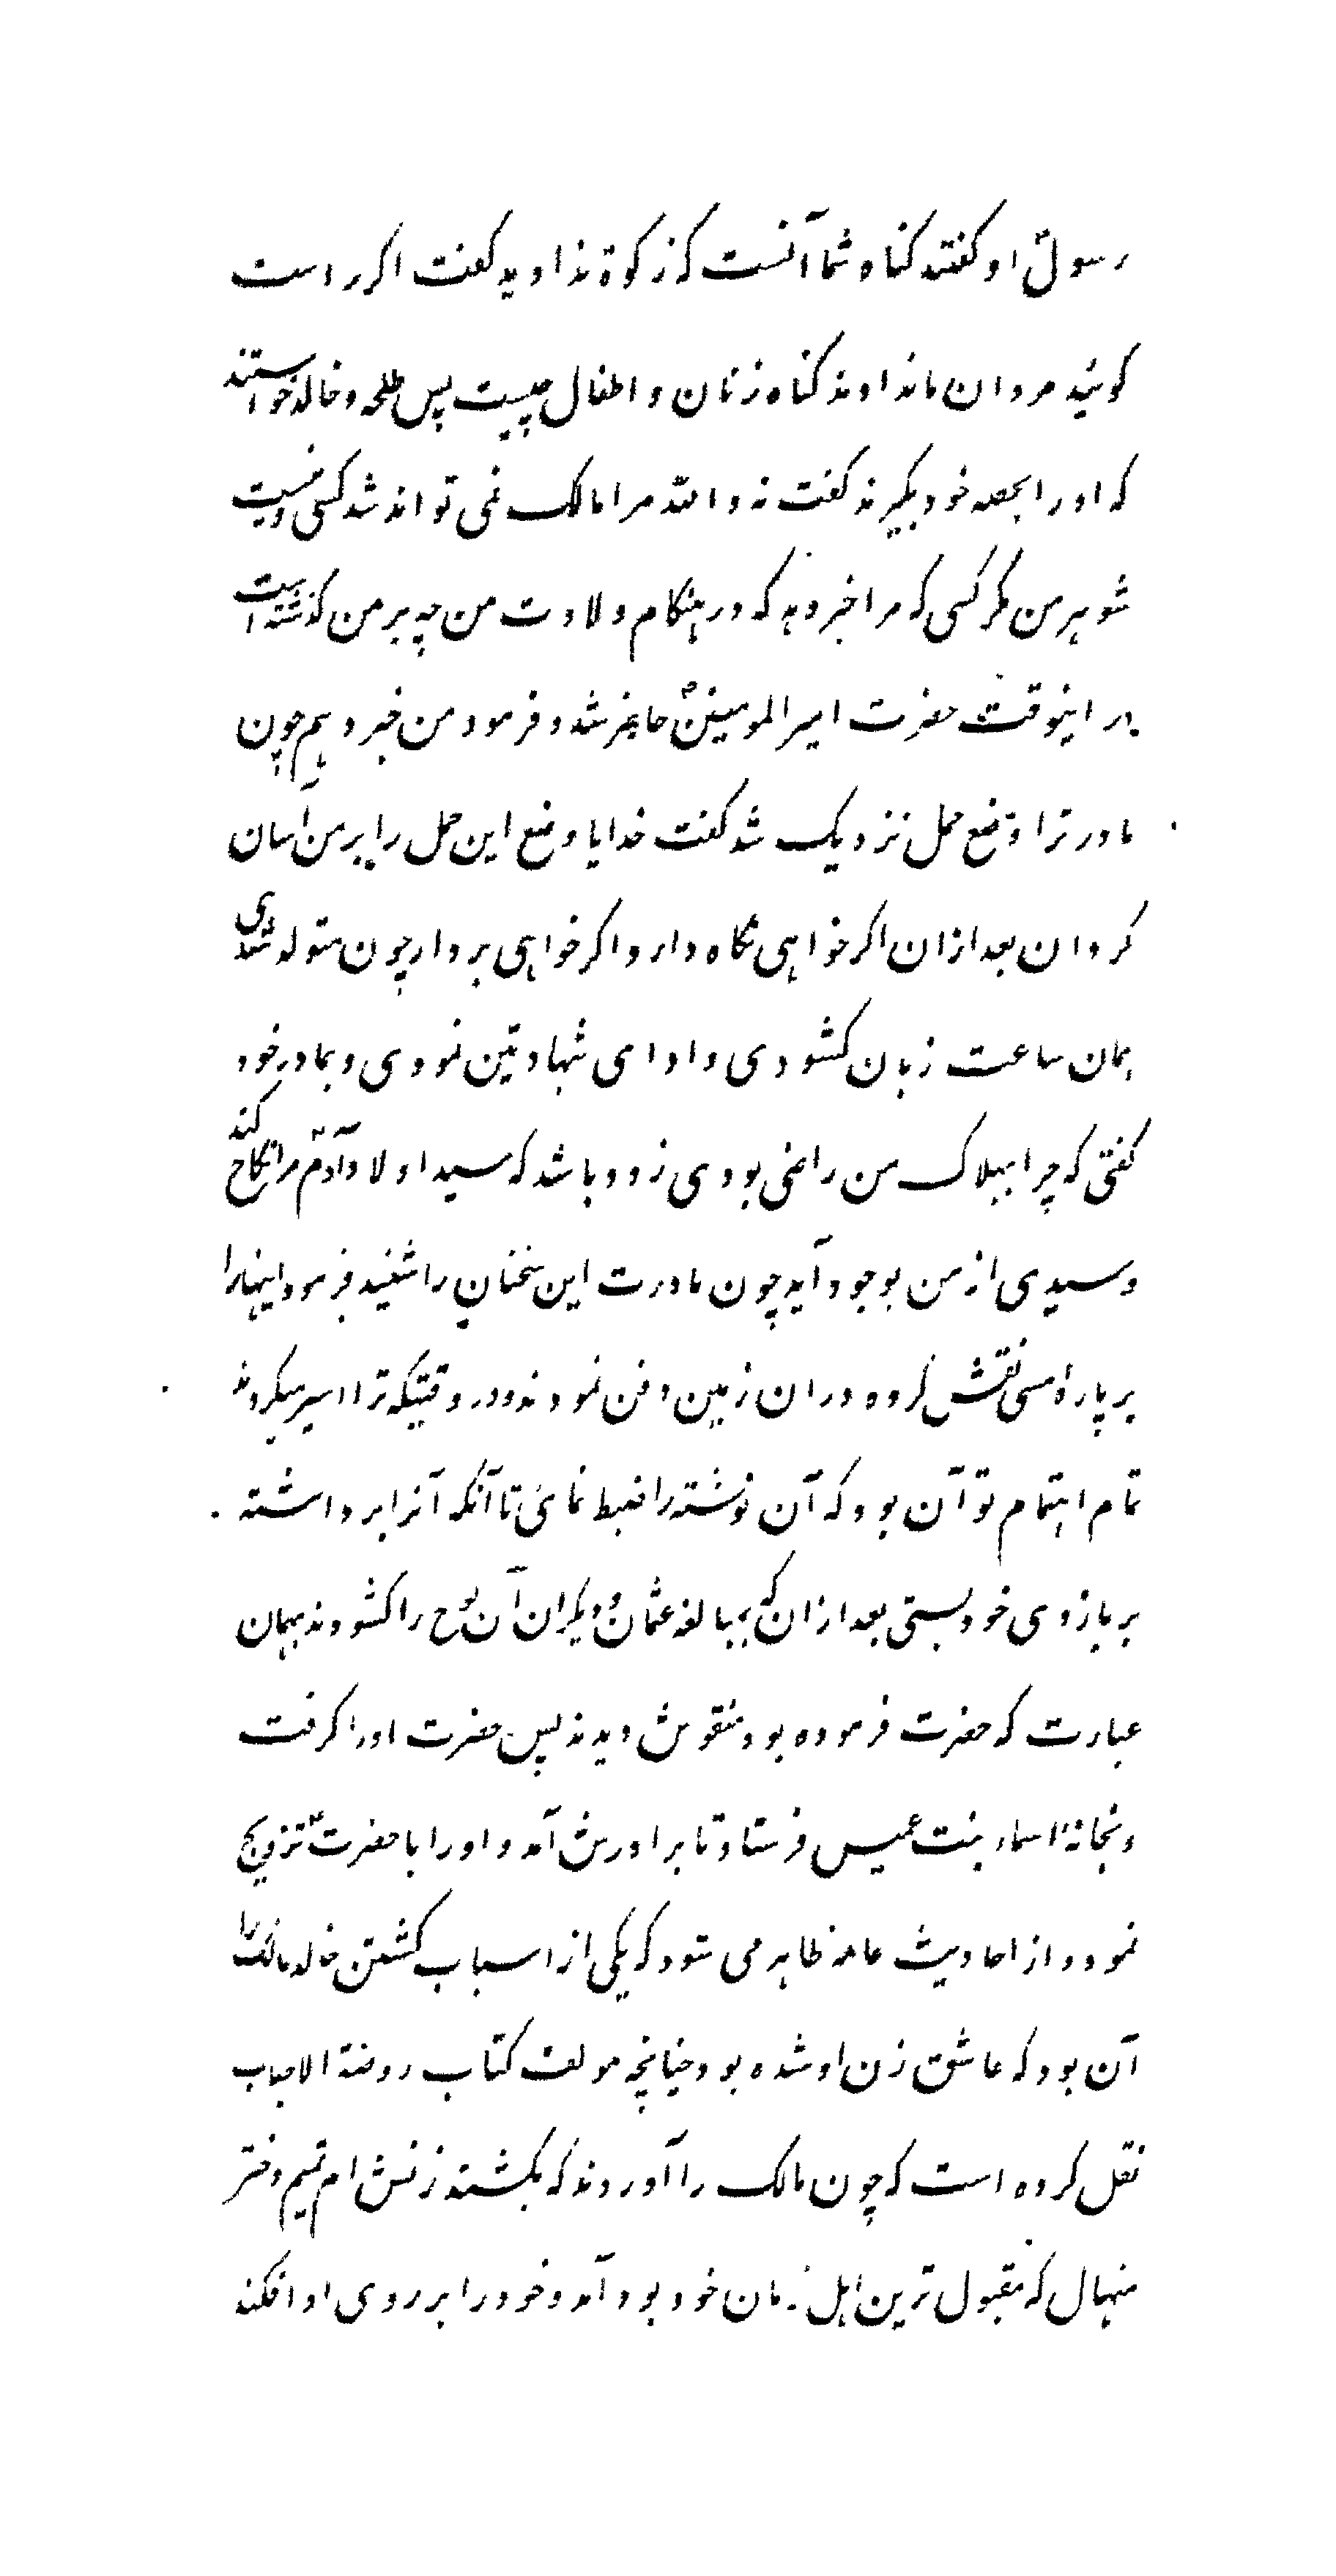 رسولؐ او گفتند گناه شما آنست که زکوة نداوید گفت اگر راست
گوئید مردان ما نداوند گناه زنان و اطفال چیست پس طلحه و خالد خواستند
که اورا بحصه خود بگیرند گفت نه والله مرا مالک نمی تواند شد کسی و نیست
شوهر من مگر کسی که مرا خبر دهد که در هنگام ولادت من چه بر من گذشته است
در اینوقت حضرت امیرالمومنینؑ حاضر شد و فرمود من خبر دهم چون
مادر ترا وضع حمل نزدیک شد گفت خدایا وضع این حمل را بر من آسان
کردان بعد ازان اگر خواهی نگاه دار و اگر خواهی بردار چون متولد شدی
همان ساعت زبان کشودی و ادای شهادتین نمودی و بمادر خود
گفتی که چرا بهلاک من راضی بودی زود باشد که سید اولاد آدمؑ مرا نکاح کند
و سیدی از من بوجود آید چون مادرت این سخنان را شنید فرمود اینها را
بر پارهٔ مسی نقش کرده در ان زمین دفن نمودند و در وقتیکه ترا اسیر میکردند
تمام اهتمام تو آن بود که آن نوشته را ضبط نمائی تا آنکه آنرا برداشته
بر بازوی خود بستی بعد ازان که بمبالغه عثمان و دیگران آن لوح را کشودند بهمان
عبارت که حضرت فرموده بود منقوش دیدند پس حضرت اورا گرفت
و بخانهٔ اسماء بنت عمیس فرستاد تا برادرش آمد و اورا با حضرتؑ تزویج
نمود و از احادیث عامه ظاهر می شود که یکی از اسباب کشتن خالد مالک را
آن بود که عاشق زن او شده بود چنانچه مولف کتاب روضة الاحباب
نقل کرده است که چون مالک را آوردند که بکشند زنش ام تمیم دختر
منهال که مقبول ترین اهل زمان خود بود آمد و خود را بر روی او افکند